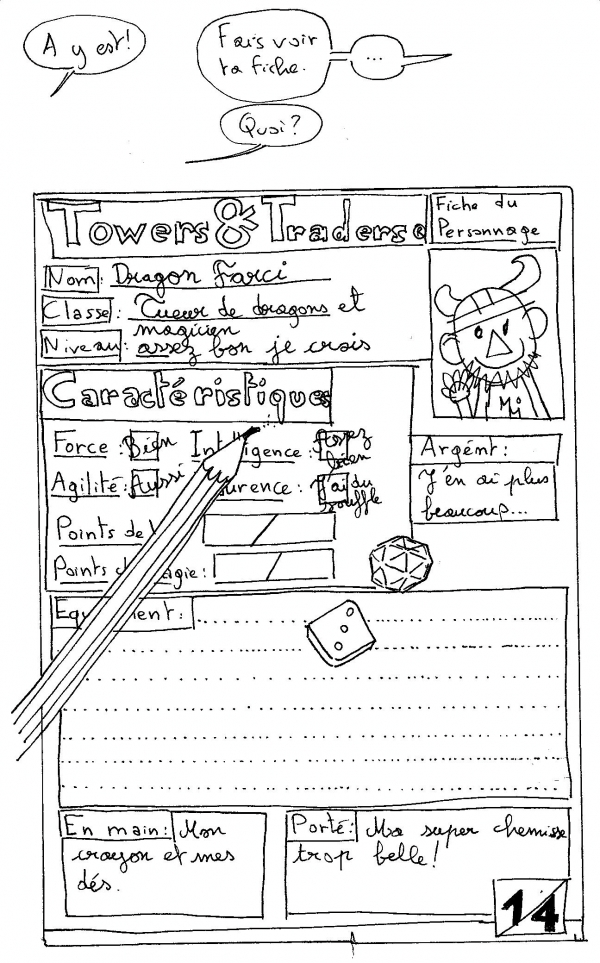 A y est!
Fais voir
ta fiche.
...
Quoi?
Towers & Traders
Fiche du
Personnage
Nom: Dragon Farci
Classe: Tueur de dragons et
magicien
Niveau: assez bon je crois
Caractéristiques
Force: Bien Intelligence: Assez
bien
Agilité: Aussi urence: J'ai du
souffle
Points de
Points de agie:
Mi
Argent:
J'en ai plus
beaucoup...
Equi ment:
En main: Mon
crayon et mes
dés.
Porté: Ma super chemise
trop belle!
14